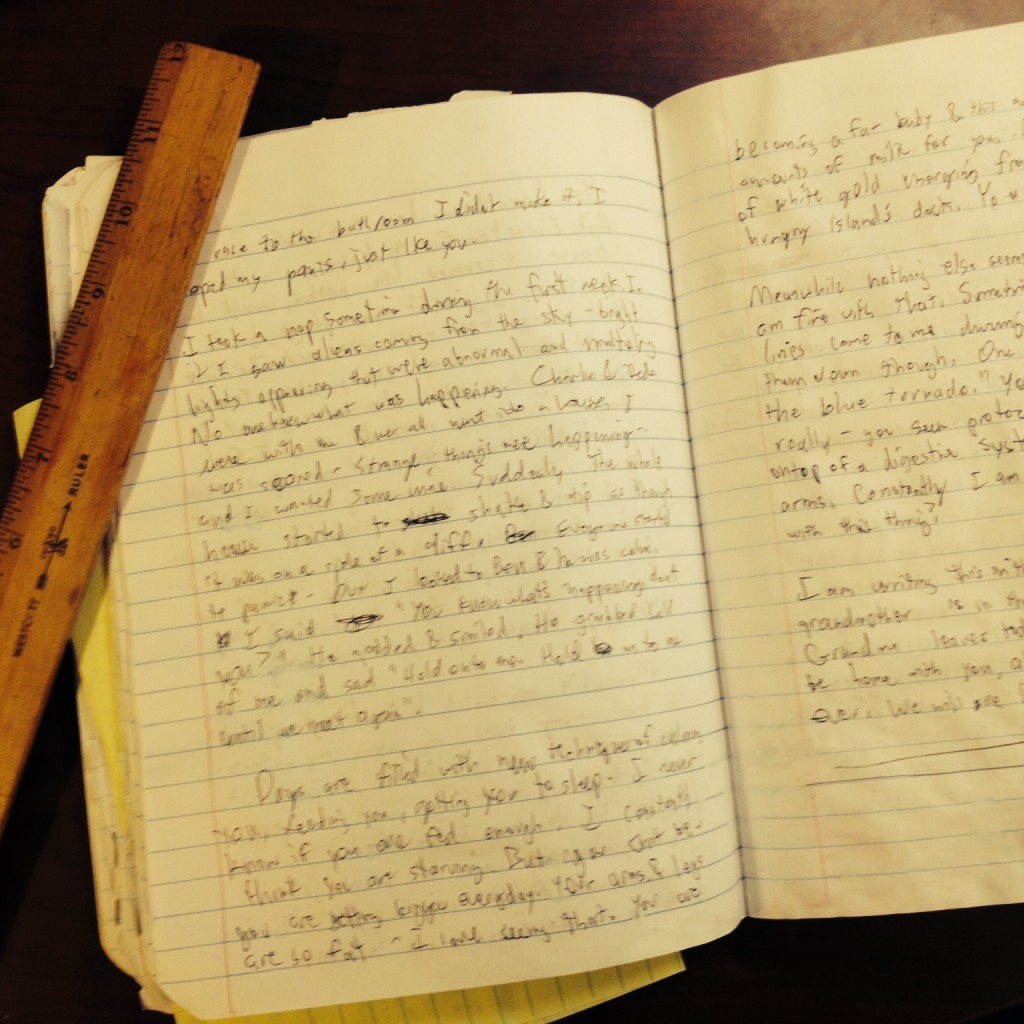 12
11
10
9
8
7
6
RULER
WESTCOTT
race to the bathroom I didn't make it, I
my pants, just like you.
I took a nap sometime during the first week. In
it I saw aliens coming from the sky - bright
lights appearing that were abnormal and
No one knew what was happening. Charlie &
were with me & we all went into a house, I
was scared - strange, things were happening -
and I wanted some wine. Suddenly the whole
house started to shake & tip as though
it was on a side of a cliff. Everyone started
to panic - I looked to Ben & he was calm.
I said "You know what's happening don't
you?" He nodded & smiled. He grabbed hold
of me and said "Hold onto me. Hold on to me
until we meet again".
Days are filled with new techniques of calming
you, feeding you, getting you to sleep. I never
know if you are fed enough. I constantly
think you are starving. But again that be-
you are getting bigger everyday. Your arms & legs
are so fat - I love seeing that. You are
becoming a fat baby & this
amounts of milk for you.
of white gold emerging
hungry island's dock. You
Meanwhile nothing else
am fine with that.
lines come to me during
them down though. One
the blue tornado."
really - you seem
ontop of a digestive
arms. Constantly I am
with this thing?
I am writing this
grandmother is in the
Grandma leaves
be home with you,
ever. We will see